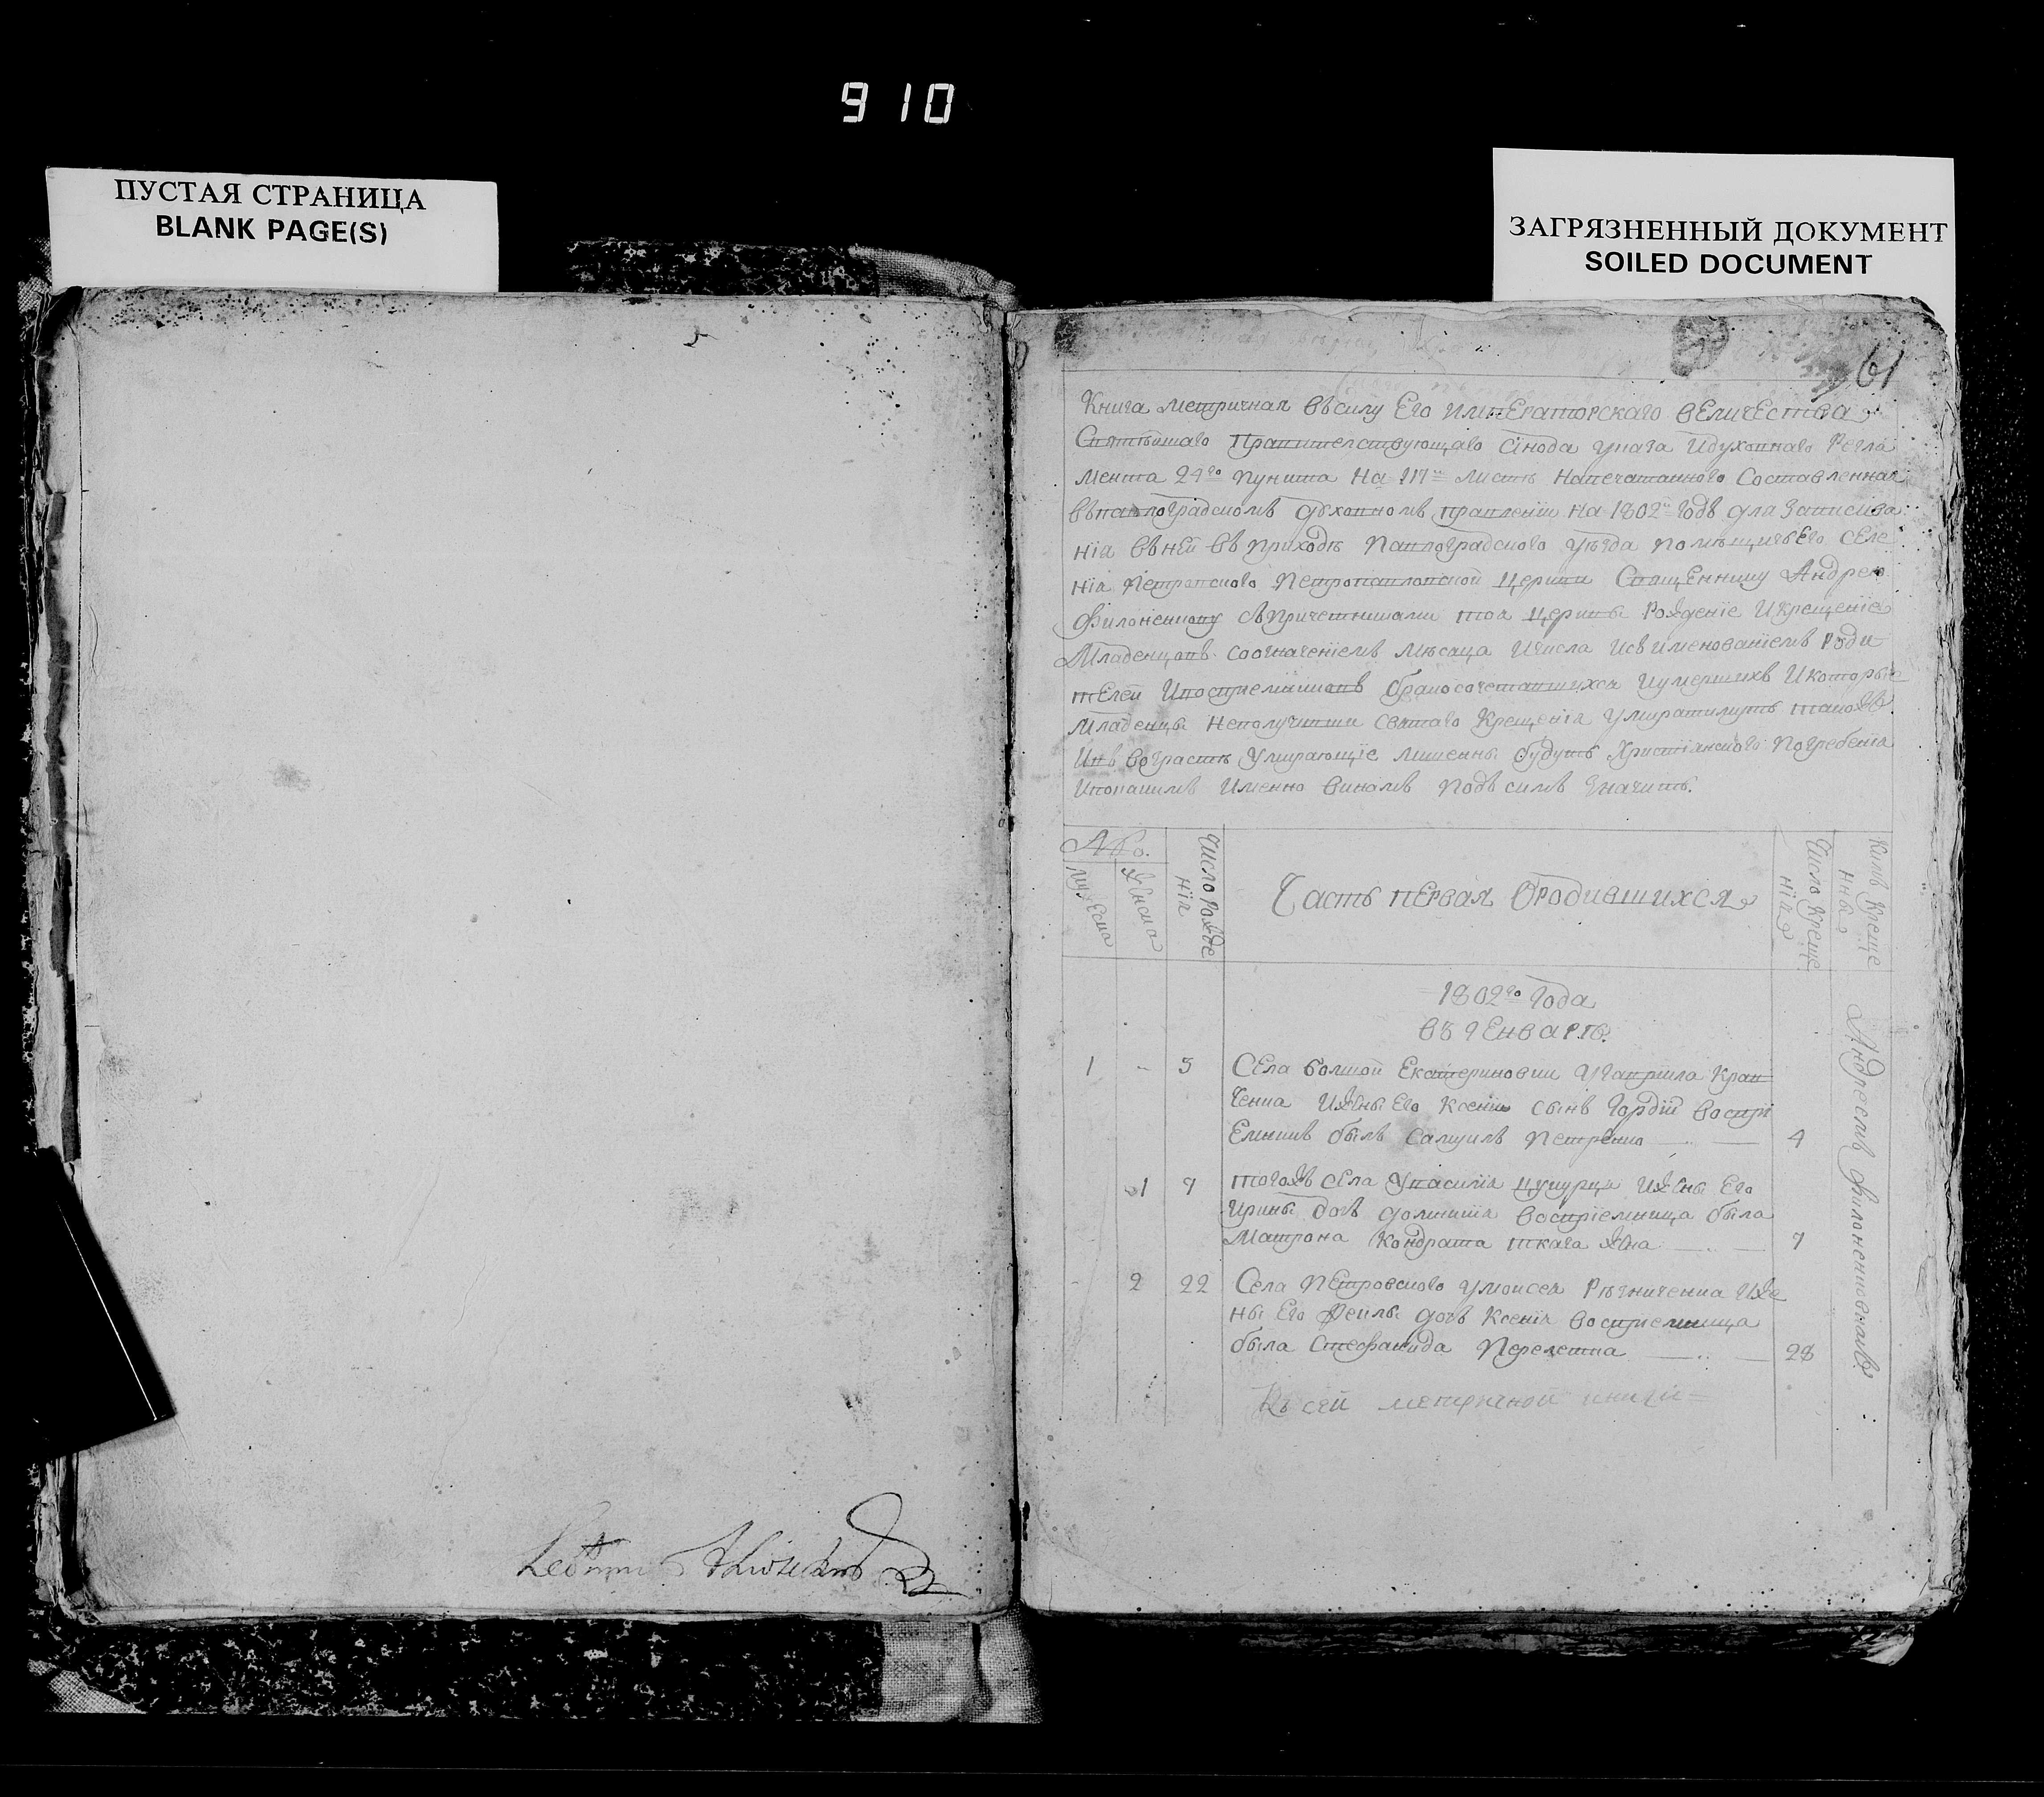 910
ПУСТАЯ СТРАНИЦА
BLANK PAGE(S)
ЗАГРЯЗНЕННЫЙ ДОКУМЕНТ
SOILED DOCUMENT
61
Книга метричная въ силу Его императорскаго величества
Святѣйшаго Правителствующаго Сѵнода указа и духовнаго Регла
мента 29го пункта на 117м листѣ напечатанного Составленная
въ павлоградскомъ духовномъ правленіи на 1802й годъ для Записива
нія въ ней въ приходѣ Павлоградского уѣзда помѣщичьего селе
нія Петровского Петропавловской церкви Священнику Андрею
Филоненкову съ причетниками тоя церкви рожденіе и крещеніе
Младенцовъ соозначеніемъ мѣсаца и числа и съ именованіемъ роди
телей и воспріемниковъ бракосочетавшихся и умершихъ и которые
младенцы неполучивши святаго Крещенія умиратимутъ такожъ
и въ возрастѣ умирающіе лишенны будутъ Христіянского погребенія
и по какимъ именно винамъ подъ симъ значитъ.
мужеска
женска
Число рожде
нія
Часть первая о родившихся
Число Креще
нія
Кимъ Креще
нны
1802го Года
въ Генварѣ.
1 - 3 Села болшой Екатериновки у Гаврила Крав
ченка и жены Его Ксеніи сынъ Гордій воспрі
Емникъ былъ Самуилъ Петренко 4
1 7 тогожъ села у Василія цуцурца и жены Его
Ирины дочь домникія воспріемница была
Матрона Кондрата ткача жена 7
2 22 Села Петровского у Моисея Рѣзниченка и же
ны Его Феклы дочь Ксенія воспріемница
была Стефанида Перелетка 28
Андреемъ Филоненковымъ
Къ сей метричной книги